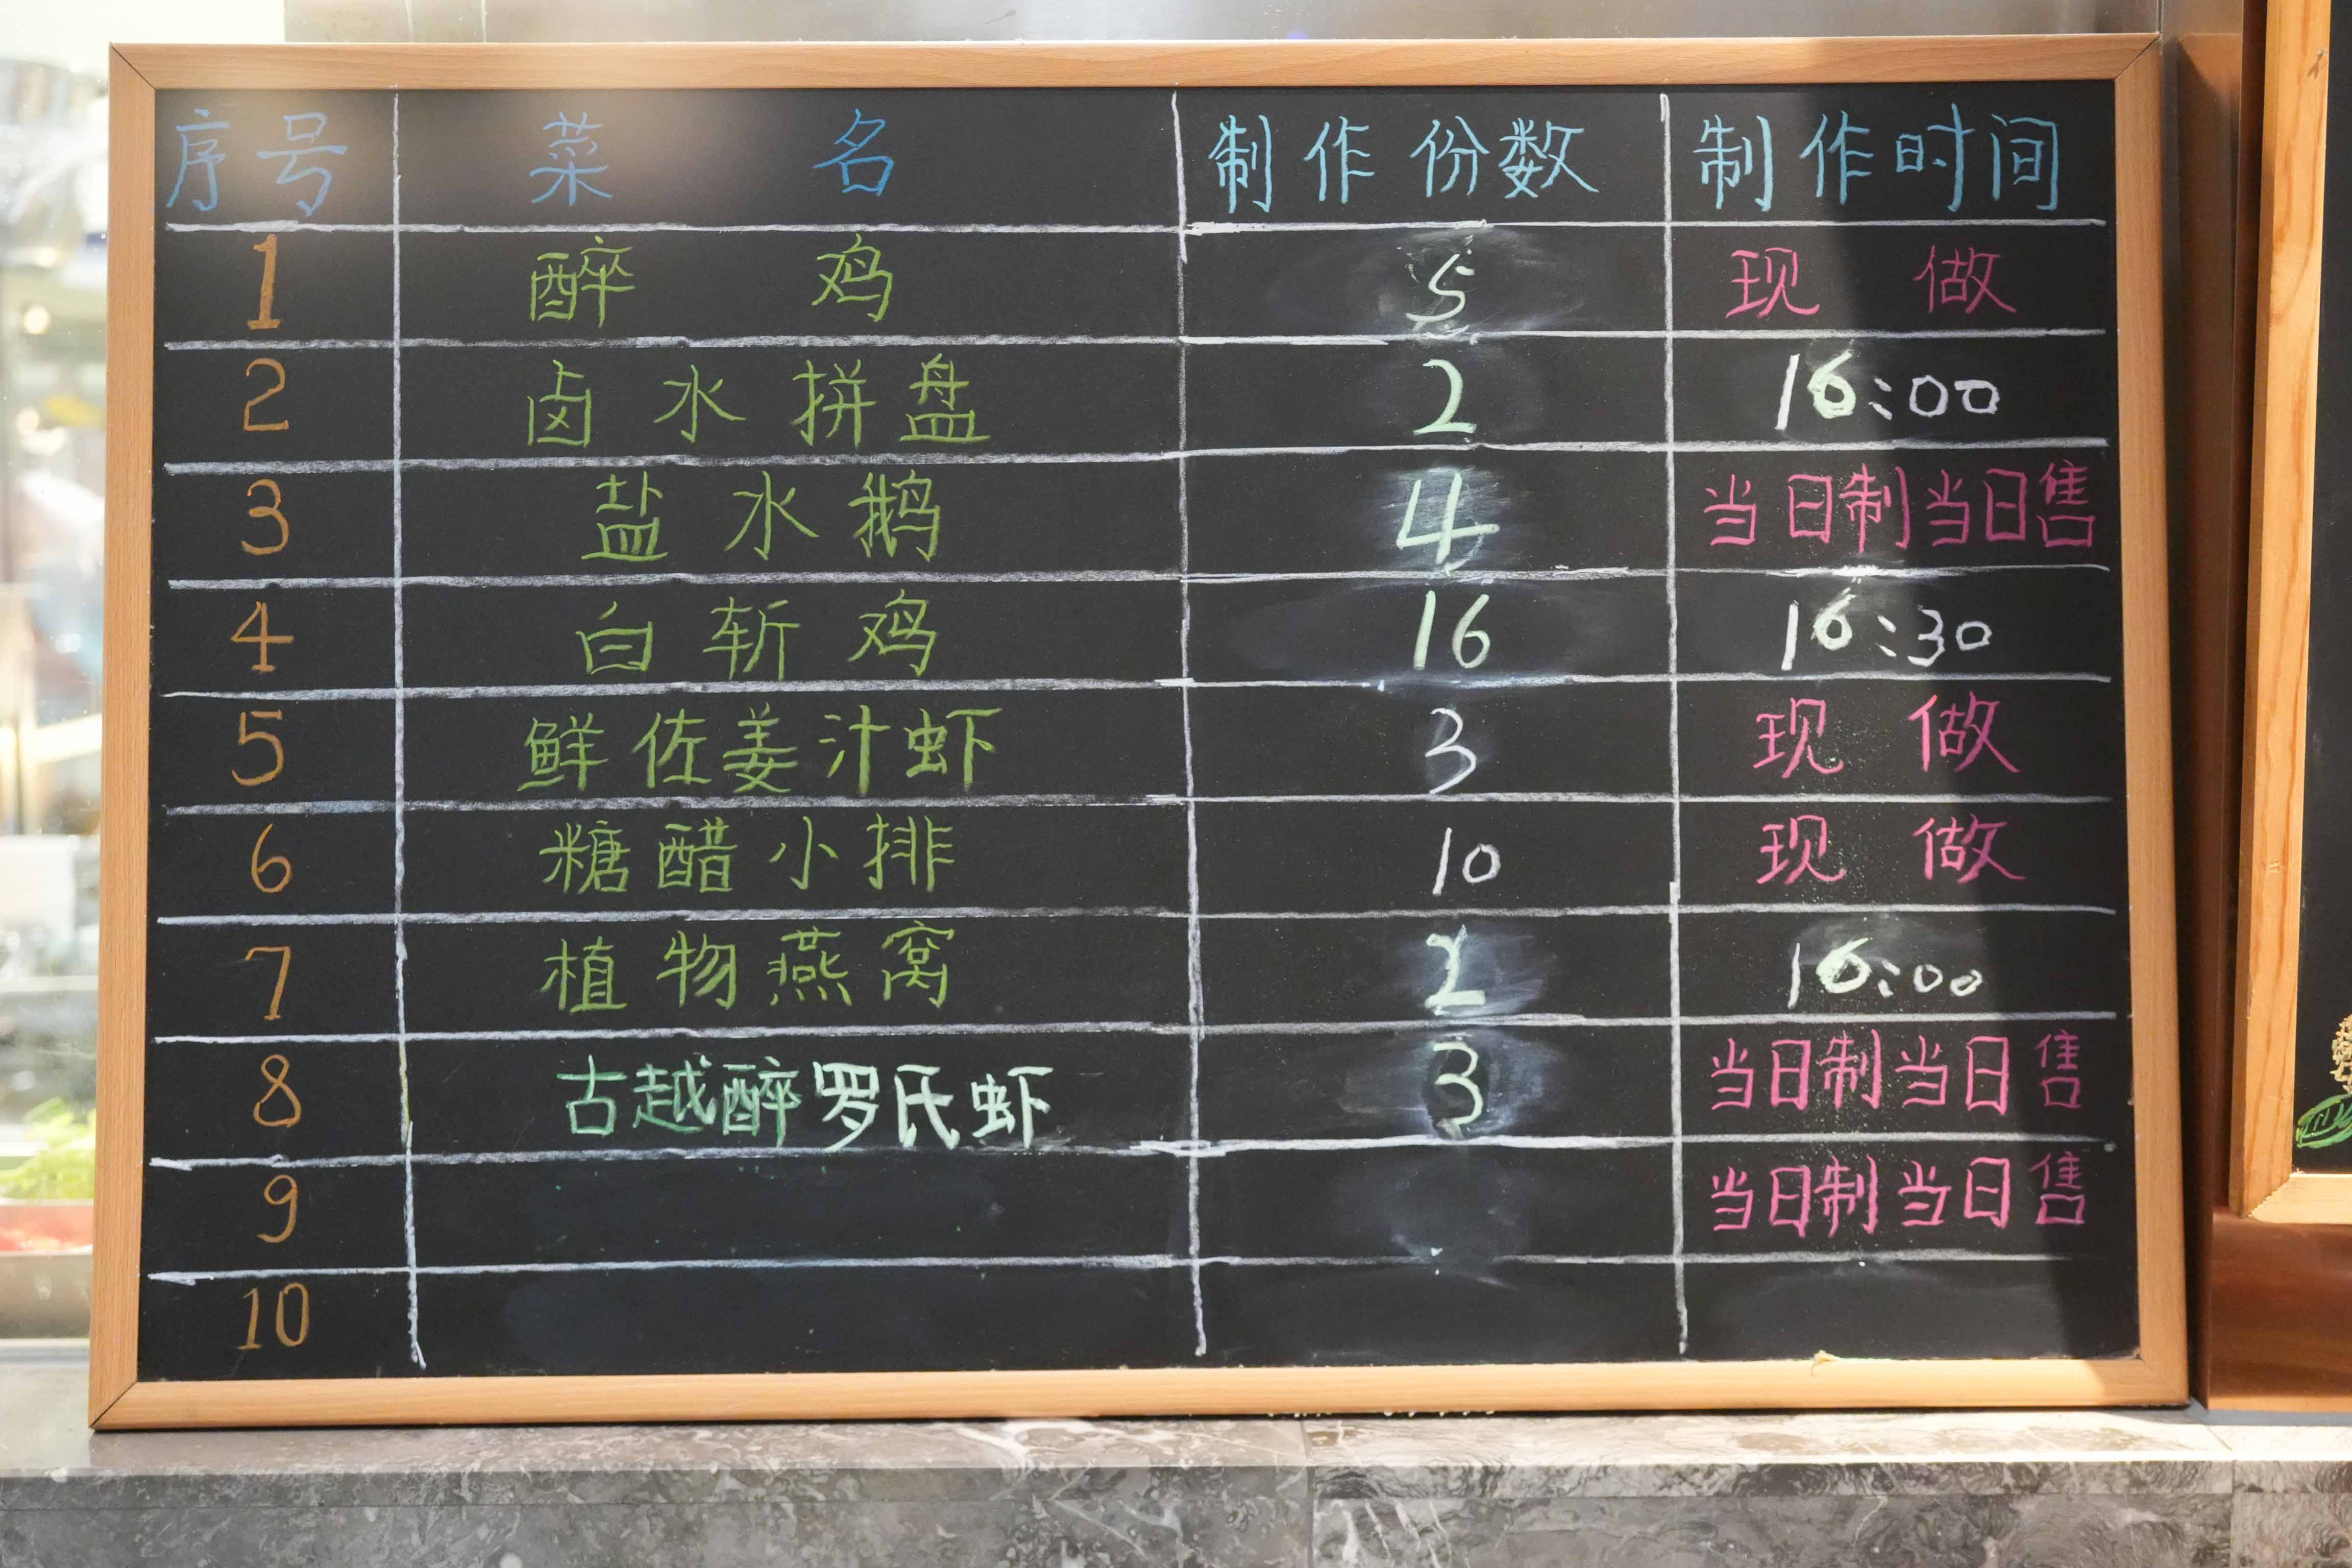 序号 菜名 制作份数 制作时间
1 醉鸡 5 现做
2 卤水拼盘 2 16:00
3 盐水鹅 4 当日制当日售
4 白斩鸡 16 16:30
5 鲜佐姜汁虾 3 现做
6 糖醋小排 10 现做
7 植物燕窝 2 16:00
8 古越醉罗氏虾 3 当日制当日售
9 当日制当日售
10